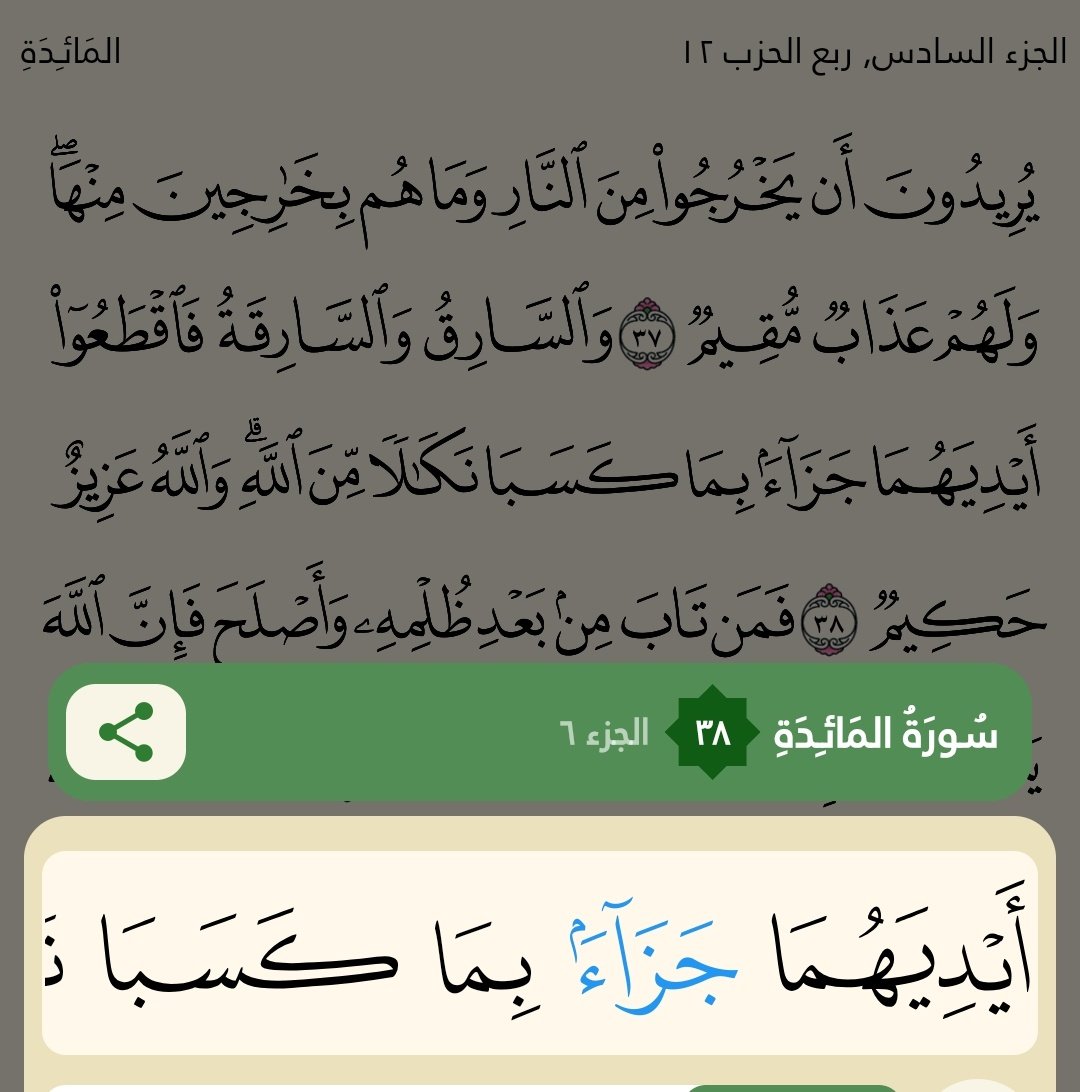 الجزء السادس, ربع الحزب ١٢ المَائِدَةِ
يُرِيدُونَ أَن يَخۡرُجُواْ مِنَ ٱلنَّارِ وَمَا هُم بِخَٰرِجِينَ مِنۡهَاۖ
وَلَهُمۡ عَذَابٞ مُّقِيمٞ ٣٧ وَٱلسَّارِقُ وَٱلسَّارِقَةُ فَٱقۡطَعُوٓاْ
أَيۡدِيَهُمَا جَزَآءَۢ بِمَا كَسَبَا نَكَٰلٗا مِّنَ ٱللَّهِۗ وَٱللَّهُ عَزِيزٌ
حَكِيمٞ ٣٨ فَمَن تَابَ مِنۢ بَعۡدِ ظُلۡمِهِۦ وَأَصۡلَحَ فَإِنَّ ٱللَّهَ
سُورَةُ المَائِدَةِ ٣٨ الجزء ٦
أَيۡدِيَهُمَا جَزَآءَۢ بِمَا كَسَبَا